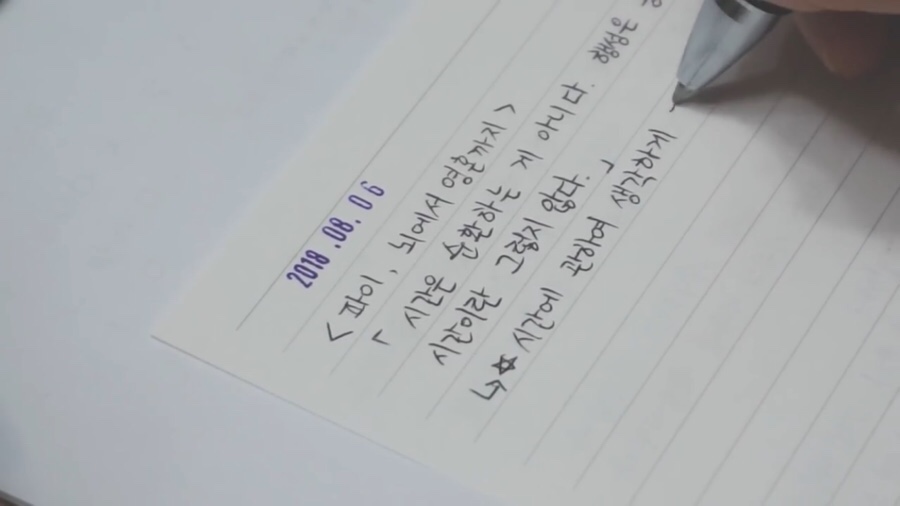 2018.08.06
< 파이, 뇌에서 영혼까지 >
「 시간은 순환하는 게 아니다. 행성은
시간이란 그렇지 않다. 」
↳ ☆ 시간에 관하여 생각하게